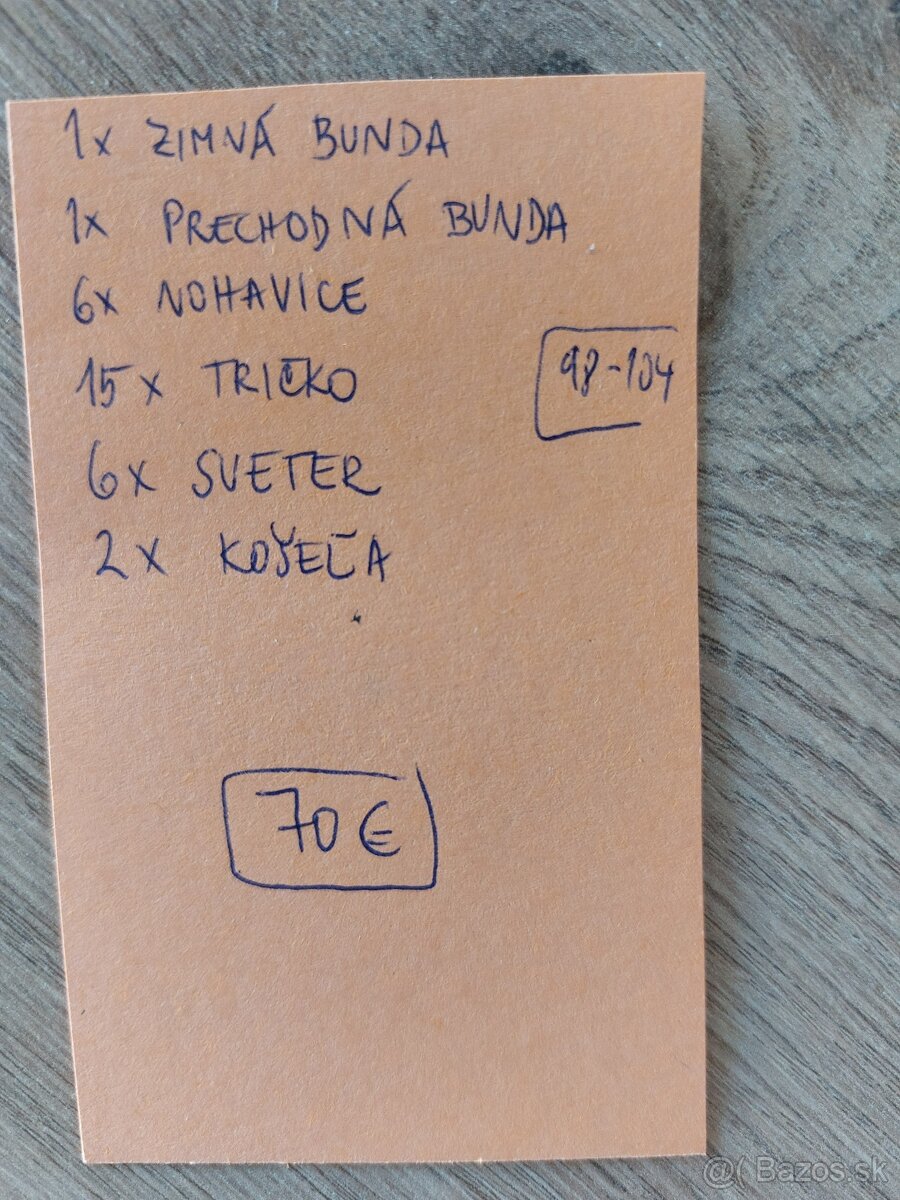 1x ZIMNÁ BUNDA
1x PRECHODNÁ BUNDA
6x NOHAVICE
15x TRIČKO
98-104
6x SVETER
2x KOŠEĽA
70€
@( Bazos.sk